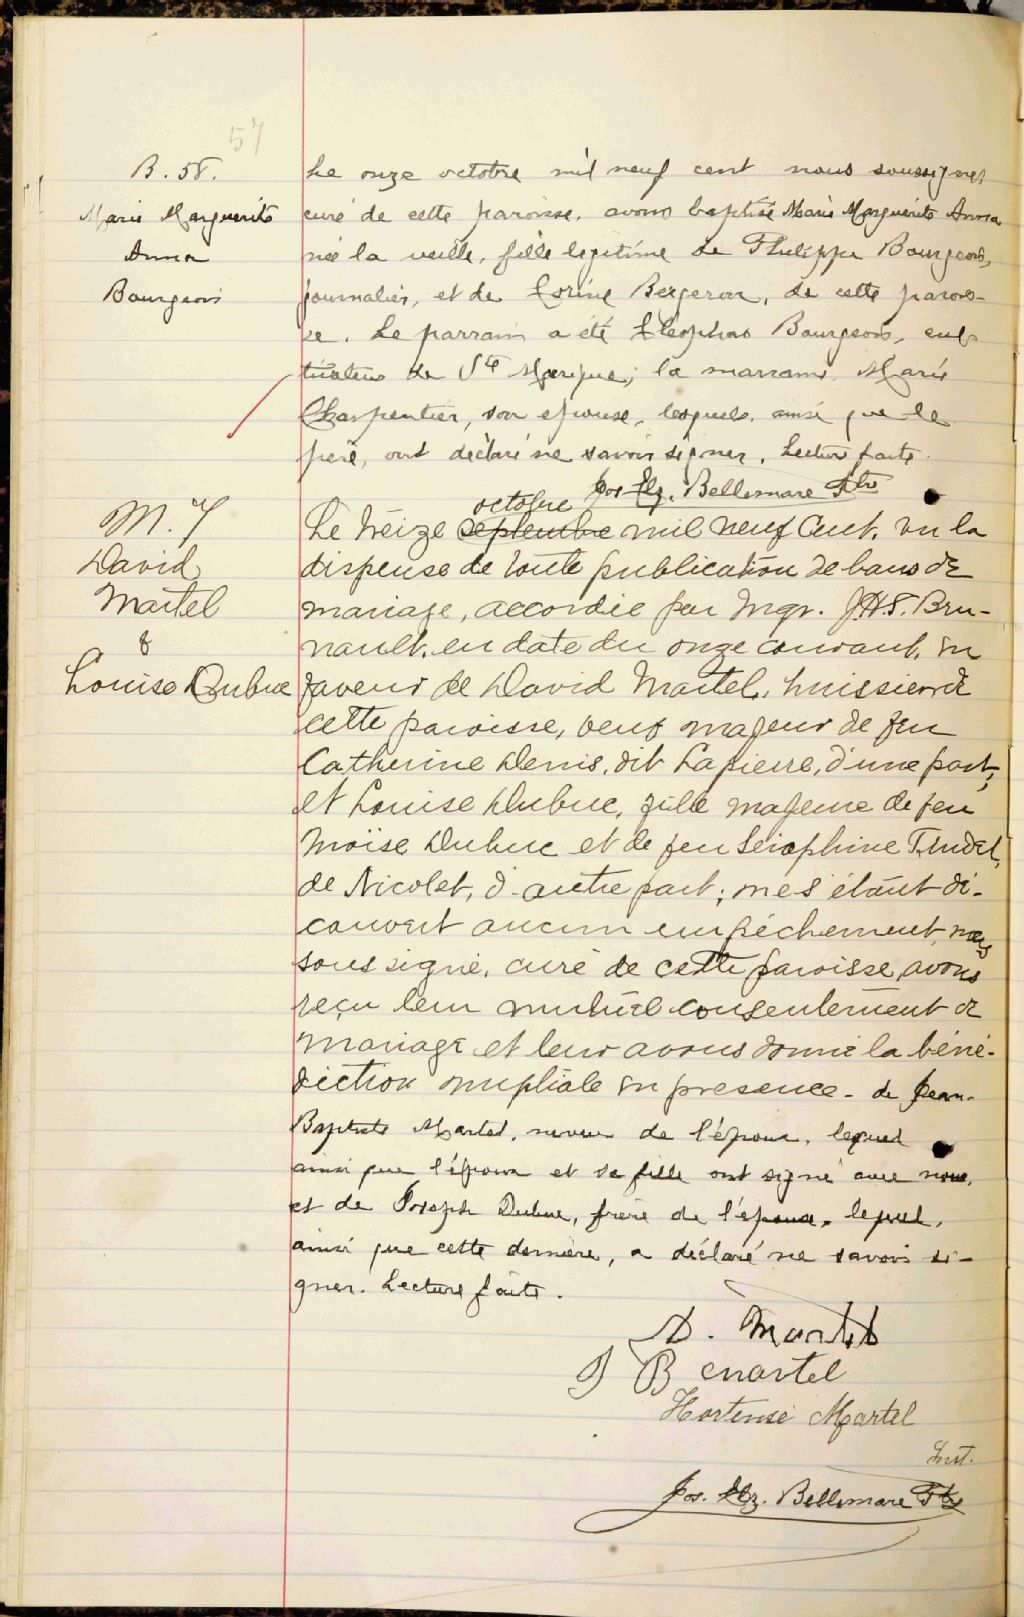 57
B. 58.
Marie Marguerite
Anna
Bourgeois
Le onze octobre mil neuf cent nous soussigné
curé de cette paroisse, avons baptisé Marie Marguerite Anna
née la veille, fille légitime de Philippe Bourgeois,
journalier, et de Exrine Bergeron, de cette parois-
se. Le parrain a été Cléophas Bourgeois, cul-
tivateur de Ste Monique; la marraine Marie
Charpentier, son épouse, lesquels, ainsi que le
père, ont déclaré ne savoir signer. Lecture faite.
Jos. Elz. Bellemare Ptre
M. 7
David
Martel
&
Louise Dubuc
octobre
Le treize septembre mil neuf cent, vu la
dispense de toute publication de bans de
mariage, accordée par Mgr. J.H.S. Bru-
nault, en date du onze courant, en
faveur de David Martel, huissier de
cette paroisse, veuf majeur de feu
Catherine Denis, dit Lapierre, d'une part;
et Louise Dubuc, fille majeure de feu
Moïse Dubuc et de feu Séraphine Trudel,
de Nicolet, d'autre part; ne s'étant dé-
couvert aucun empêchement, nous
soussigné, curé de cette paroisse, avons
reçu leur mutuel consentement de
mariage et leur avons donné la béné-
diction nuptiale en présence - de Jean-
Baptiste Martel, neveu de l'époux, lequel
ainsi que l'époux et sa fille ont signé avec nous,
et de Joseph Dubuc, frère de l'épouse, lequel,
ainsi que cette dernière, a déclaré ne savoir si-
gner. Lecture faite.
D. Martel
J B Martel
Hortense Martel
Inst.
Jos. Elz. Bellemare Ptre